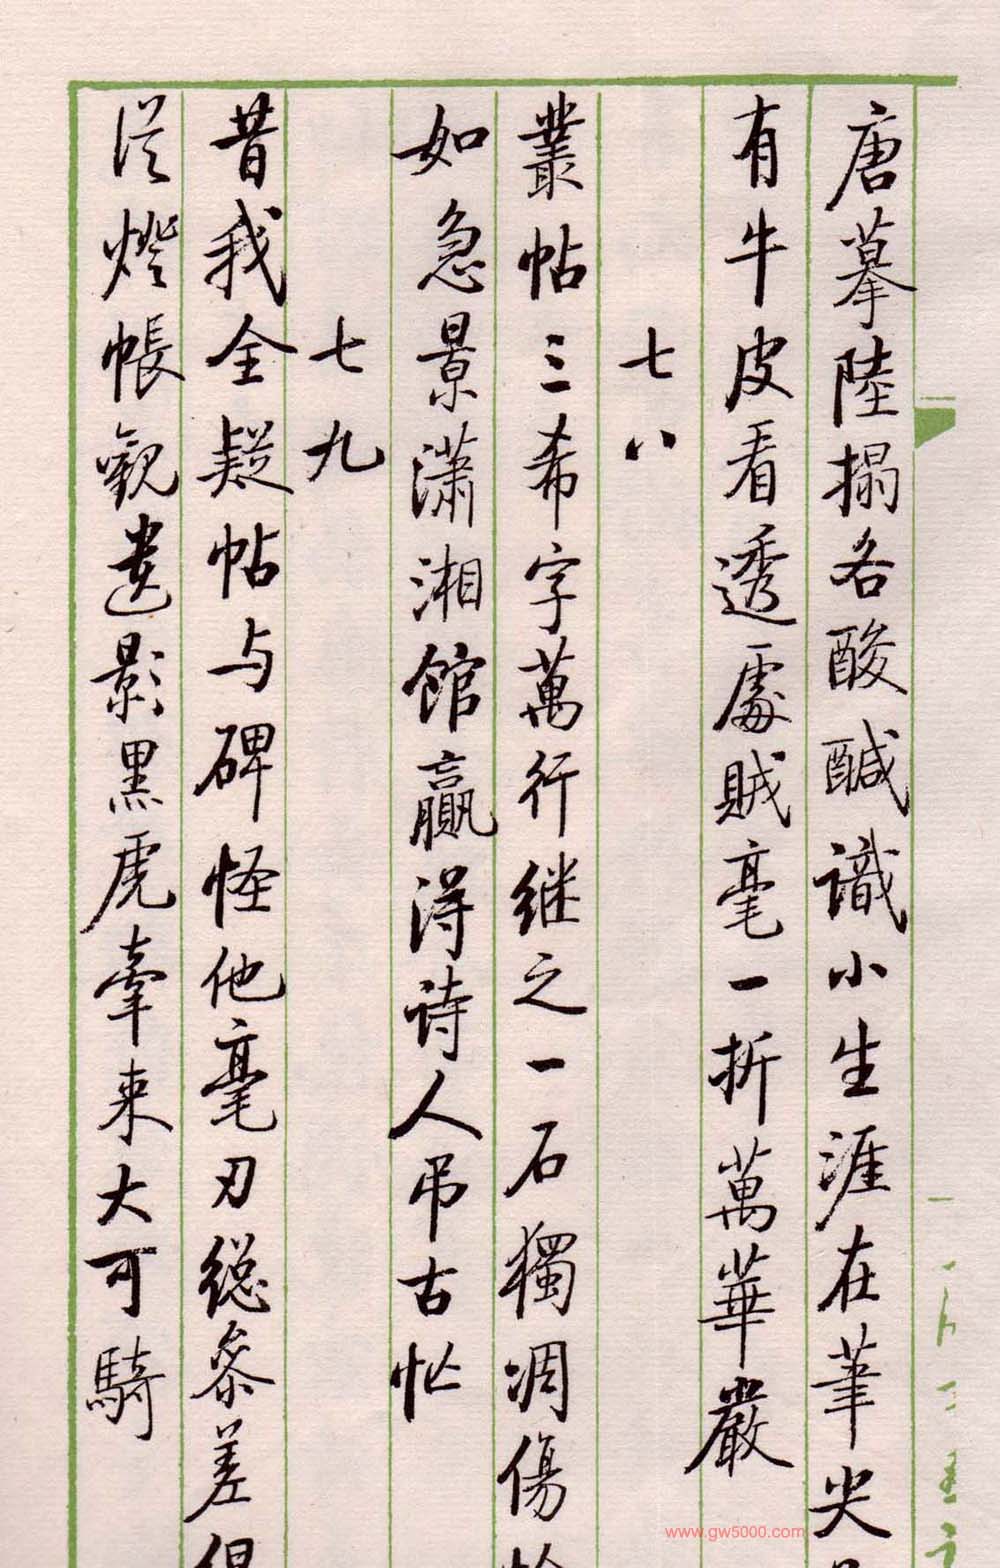 唐摹陸搨各酸醎識小生涯在筆尖
有牛皮看透處賊毫一折萬華嚴
七八
叢帖三希字萬行继之一石獨凋傷
如急景瀟湘館贏淂诗人吊古忙
七九
昔我全疑帖与碑怪他毫刃総参差
从燈帳觀遗影黑虎牽来大可騎
www.gw5000.com